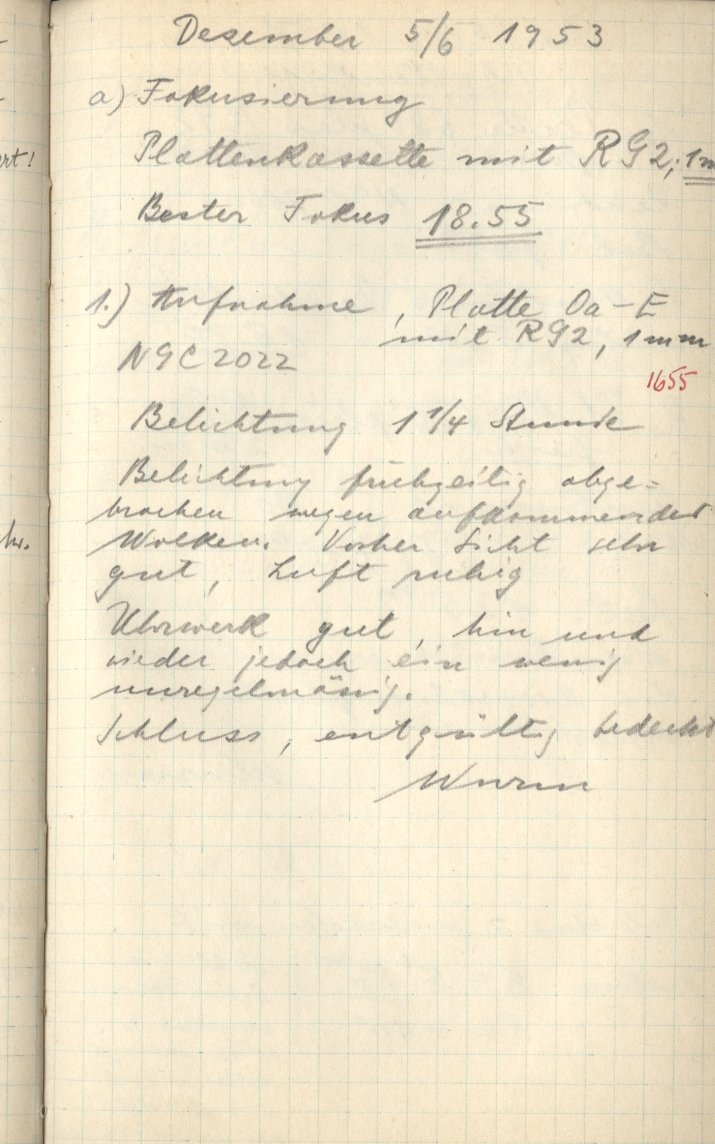 Dezember 5/6 1953
a) Fokusierung
Plattenkassette mit RG2; 1m
Bester Fokus 18.55
1.) Aufnahme, Platte Oa-E
mit RG2, 1mm
NGC 2022
1655
Belichtung 1 1/4 Stunde
Belichtung frühzeitig abge=
brochen wegen aufkommender
Wolken. Vorher Sicht sehr
gut, Luft ruhig
Uhrwerk gut, hin und
wieder jedoch ein wenig
unregelmässig.
Schluss, entgültig bedeckt
Wurm